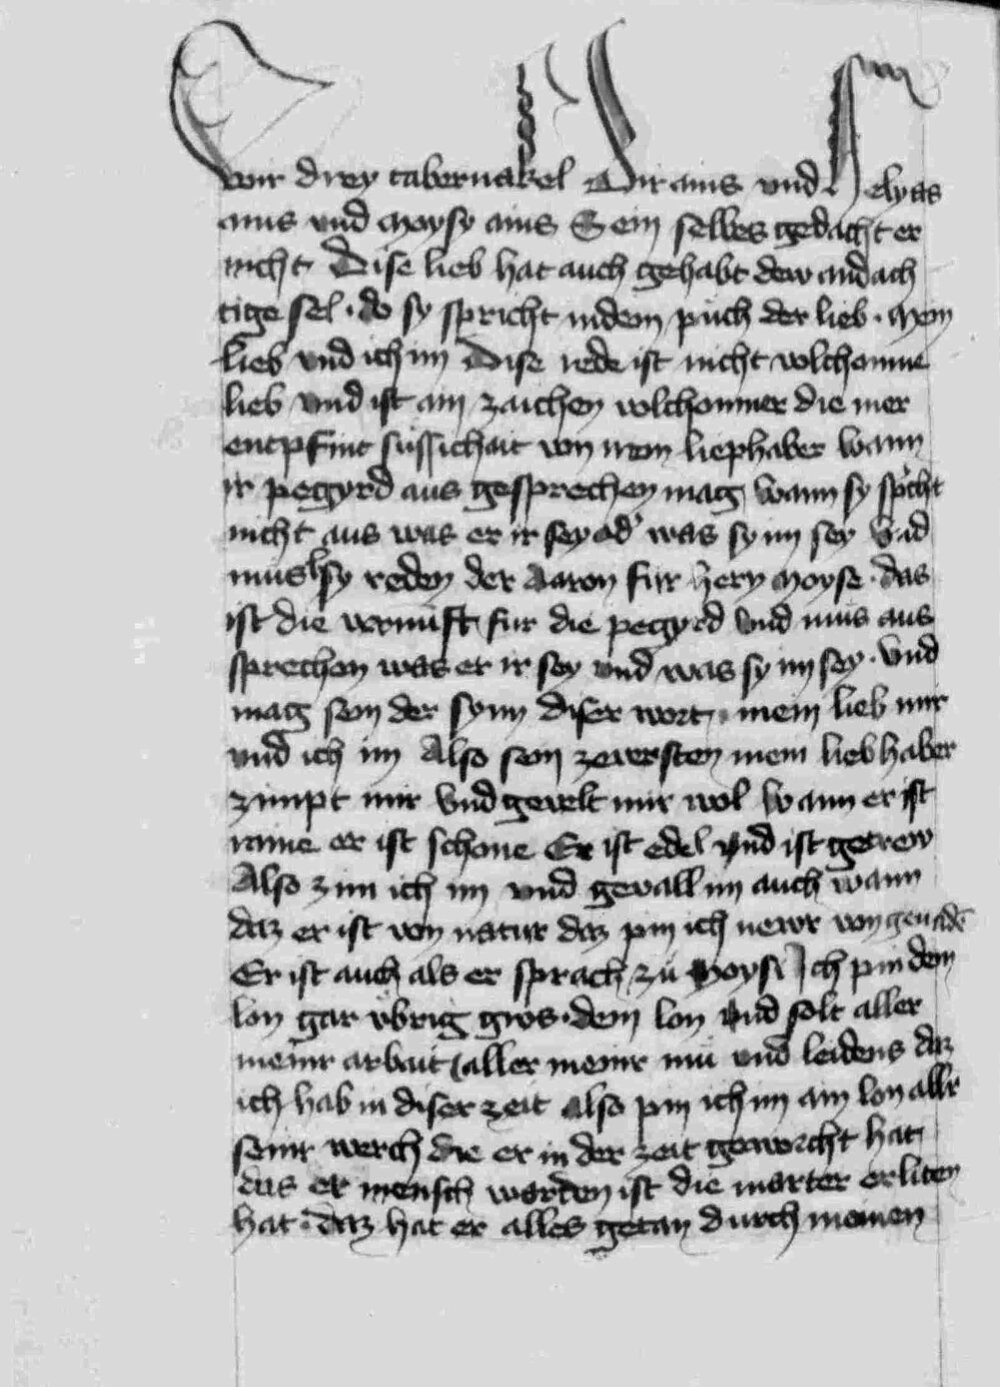 wir drey tabernakel Dir ains und Helyas
ains und Moysy ains Sein selbes gedacht er
nicht Dise lieb hat auch gehabt dew andach
tige sel · do sy spricht in dem puch der lieb · Mein
lieb und ich im Dise rede ist nicht volchomne
lieb und ist ain zaichen volchomner die mer
entpfint süssichait von irem liephaber wann
ir pegyrd aus gesprechen mag wann sy spricht
nicht aus was er ir sey od' was sy im sey Und
mus sy reden der Aaron für hern Moyse · das
ist die vernüft für die pegyrd und mus aus
sprechen was er ir sey und was sy im sey · Und
mag sein der synn diser wort · mein lieb mir
und ich im Also sein zeversten mein liebhaber
zimpt mir und gevelt mir wol wann er ist
raine er ist schone Er ist edel und ist getrew
Also zim ich im und gevall im auch wann
daz er ist von natur daz pin ich newr von genade
Er ist auch als er sprach zu Moysi Ich pin dein
lon gar übrig gros · dein lon und solt aller
meinr arbait aller meinr mü und leidens daz
ich hab in diser zeit also pin ich im ain lon allr
seinr werch die er in der zeit geworcht hat
das er mensch warden ist die marter erliten
hat · daz hat er alles getan durch meinen